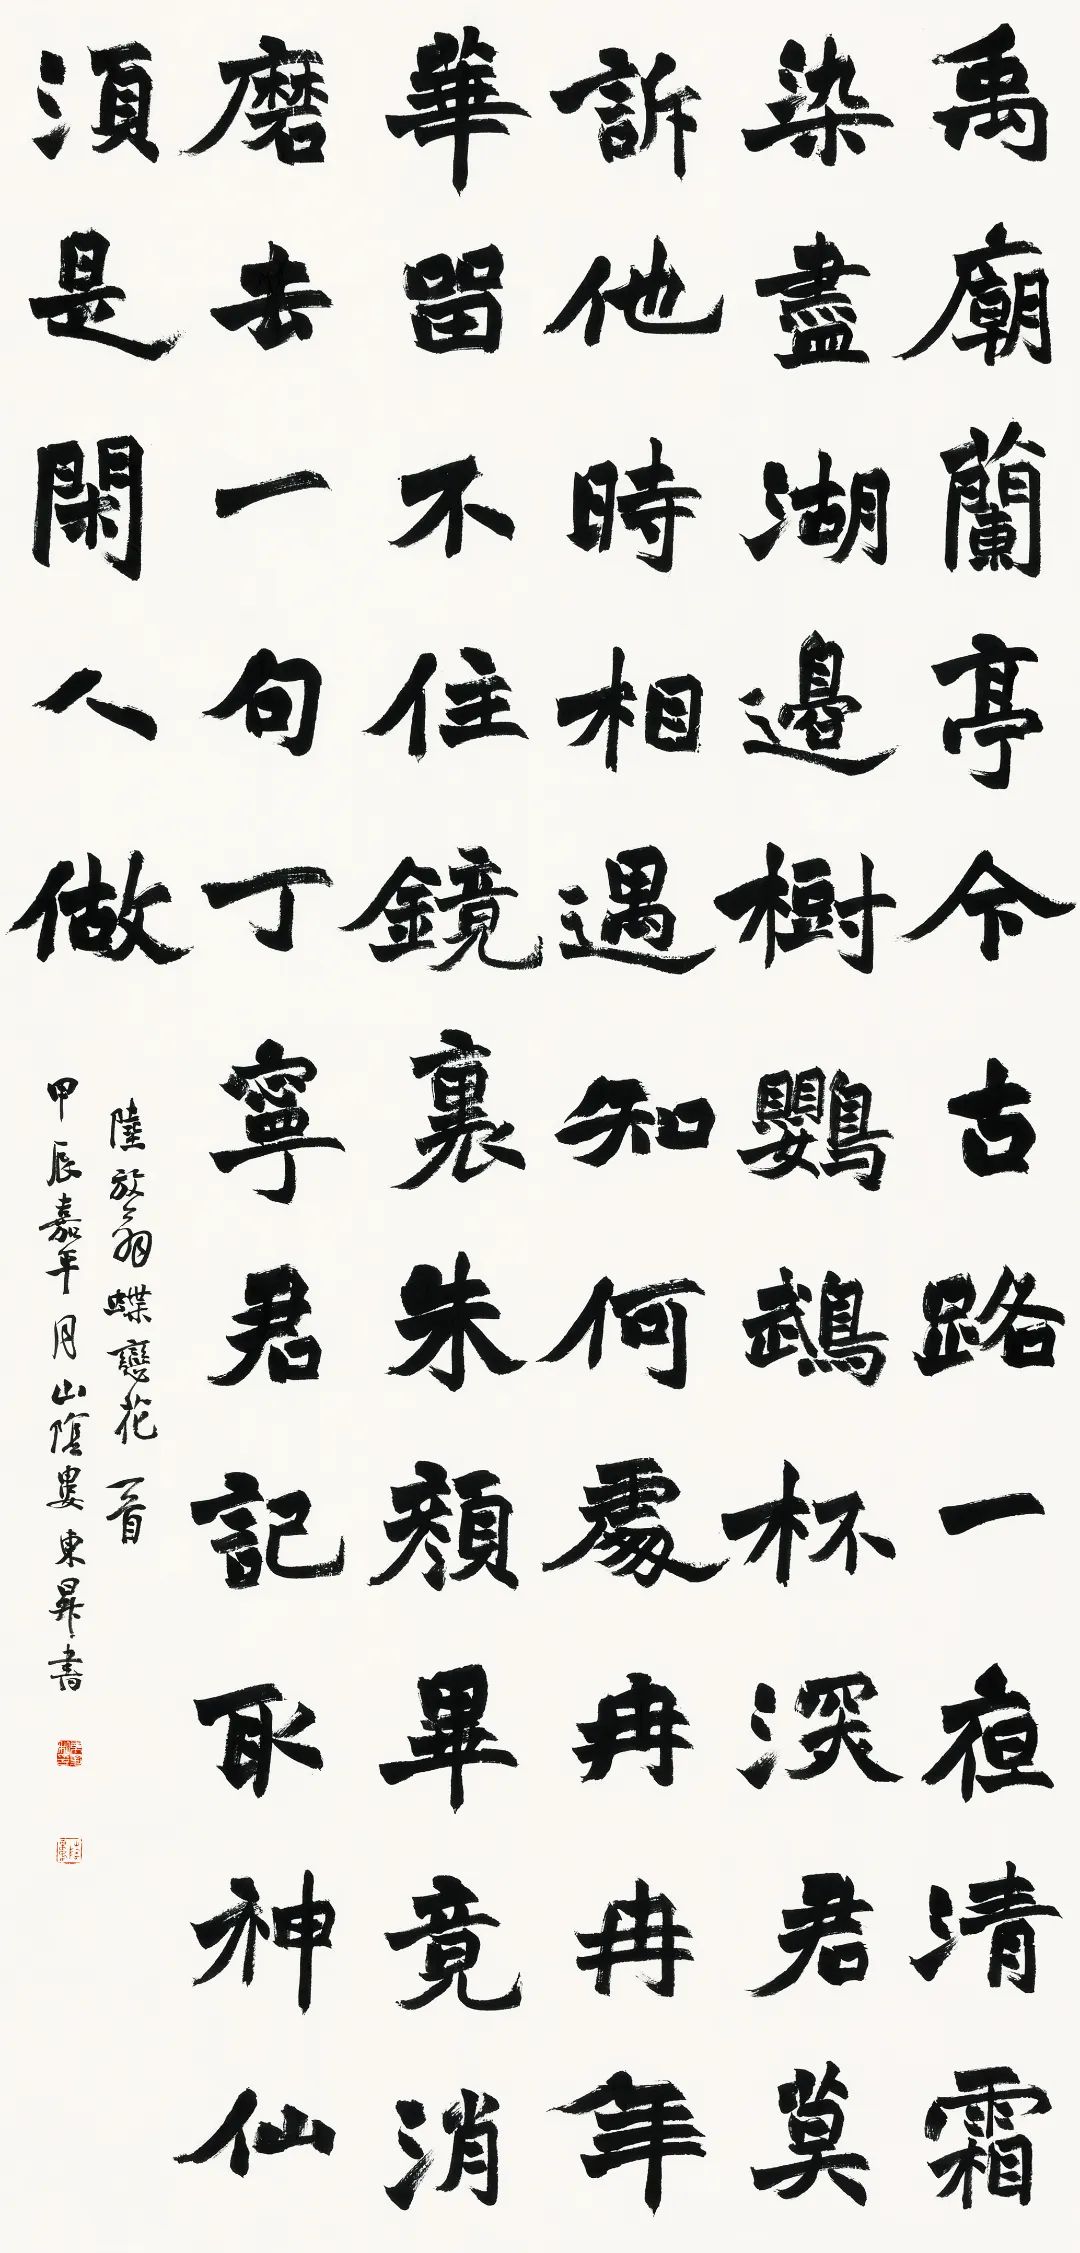 禹廟蘭亭今古路一夜清霜
染盡湖邊樹鸚鵡杯深君莫
訴他時相遇知何處冉冉年
華留不住鏡裏朱顏畢竟消
磨去一句丁寧君記取神仙
須是閑人做
陸放翁蝶戀花一首
甲辰嘉平月山陰婁東昇書